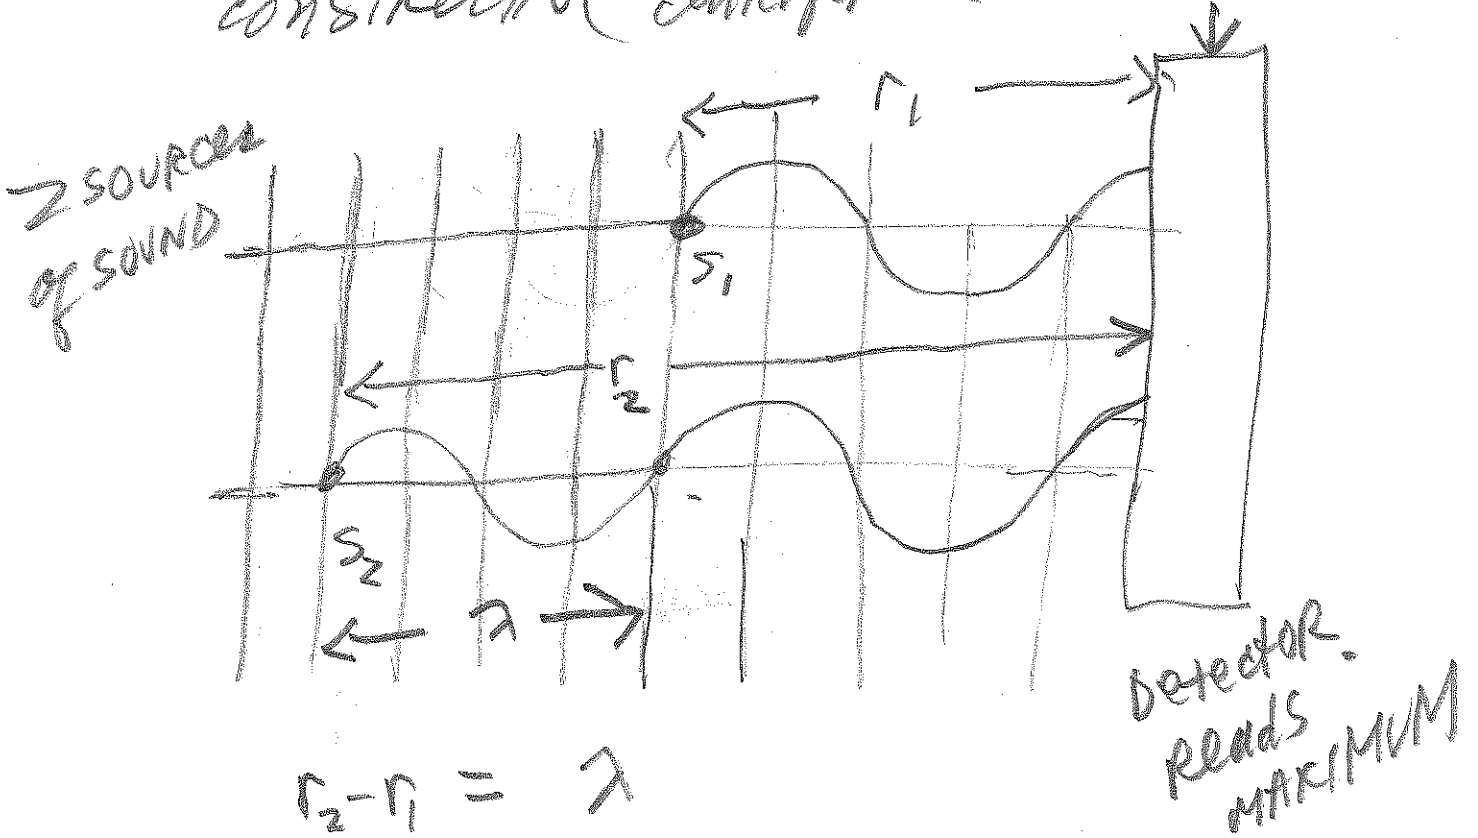 r₁
2 SOURCES
of SOUND
S₁
r₂
S₂
λ
Detector
Reads
MAXIMUM
r₂-r₁ = λ